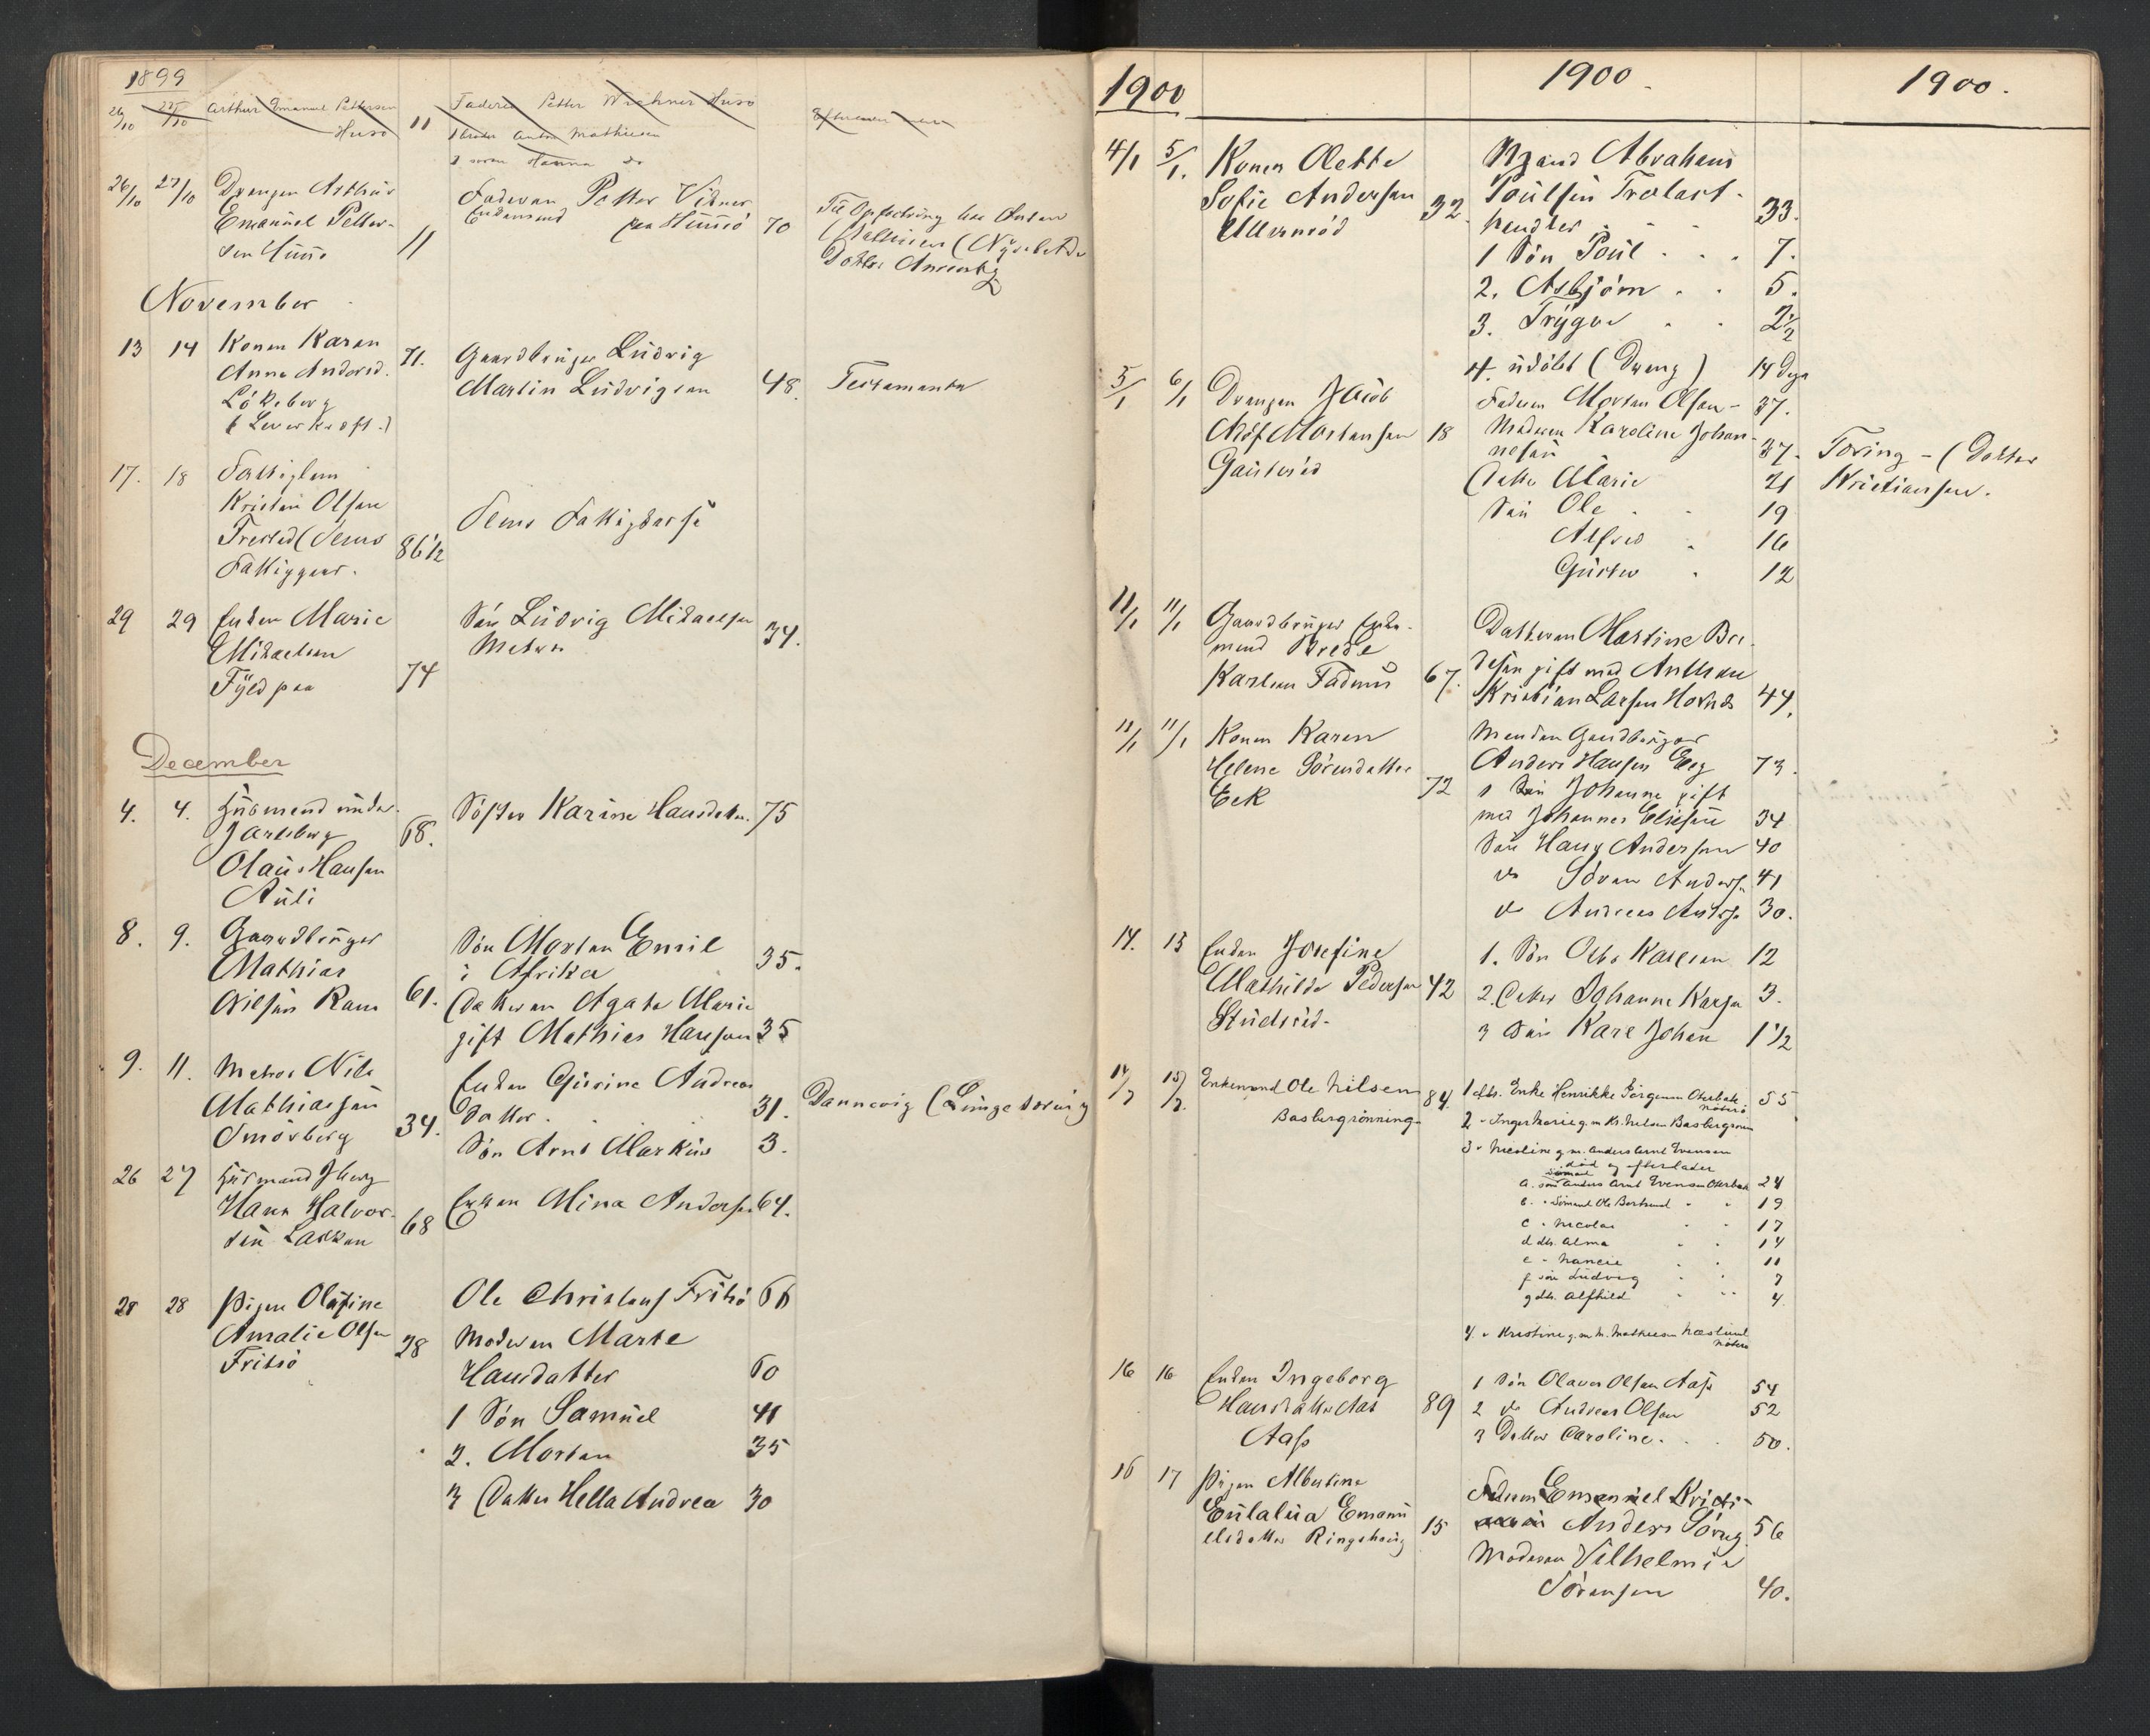 1899
26/10 27/10 Arthur Emanuel Pettersen 11 Faderen Petter Wichner Husø
Husø 1 broder Anton Mathiesen
2 søren Hanna do
26/10 27/10 Drengen Arthur Faderen Petter Vidner
Emanuel Petter- Enkemand paa Husø 70 Til Opfostring hos Anton
sen Husø 11 Mathisen
Datter
November
13 14 Konen Karen 71. Gaardbruger Ludvig
Anna Andersd. Martin Ludvigsen 48. Testamente
Løkeberg
17. 18 Fattiglem
Kristen Olsen
Trested (Sems 86 1/2 Sems Fattigkasse
Fattiggaar.
29 29 Enken Marie Søn Ludvig Mikaelsen 34.
Mikaelsen Matros
Fyldpaa 74
December
4. 4. Husmand under Søster Karine Hansdatter. 75
Jarlsberg 68.
Olaus Hansen
Auli
8. 9. Gaardbruger Søn Morten Emil 35.
Mathias i Afrika
Nilsen Ram 61. Datteren Agate Marie
gift Mathias Hansen 35
9. 11. Matros Nils Enken Gurine Andrea
Mathiassen 34. Datter. 31. Dannevig
Smørberg Søn Arnt Markus 3.
26 27 Husmand
Hans Halvor- 68 Enken Mina Anders. 64.
sen Bakken
28 28 Pigen Olufine Ole Christens Fritsø 66
Amalie Olsen 28 Moderen Marte
Fritsø Hansdatter 60
1 Søn Samuel 41
2. Morten 35
3 Datter Hella Andrea 30
1900 1900. 1900.
4/1 5/1. Konen Olette Mand Abraham
Sofie Andersen 32. Poulsen Trælast-
Ullernrød handler 33.
1 Søn Poul . . . 7.
2. Asbjörn . . 5.
3. Trygve . . 2 1/2
4. udöbt (Dreng) 14 Dage
5/1 6/1 Drengen Jacob Faderen Morten Olsen - 37.
Mortensen 18 Moderen Karoline Johan-
Gauterød nesen 37. Toring - (Datter
Datter Marie 21 Kristiansen.
Søn Ole . . 19
Alfred . 16
Gustav . 12
11/1 11/1 Gaardbruger Enke- Datteren Martine Bre-
mand Brede desen gift med Anthon
Karlsen Fadum 67. Kristian Larsen Hovnds 44.
11/1 11/1 Konen Karen Manden Gaardbruger
Helene Sörensdatter 72 Anders Hansen Eeg 73.
Eek 1 Johanne gift
med Johannes Eliesen 34
Søn Hans Andersen 40
do Søren Anders. 41
do Andreas Anders. 30.
14. 15 Enken Josefine 1. Søn Otto Karlsen 12
Mathilde Pedersen 42 2. Datter Johanne Karlsen 3.
Studsrød. 3 Søn Karl Johan 1 1/2
14/1 15/1. Enkemand Ole Nilsen 84. 1 dtr. Enke Henrikke Jørgensen Oterbek 55
Basbergrønning. Nøterø
2 " Inger Marie g. m. Kr. Nielsen Basbergrønn
3 " Nicoline g. m. Anders Arnt Evensen
død og efterlader
a. søn Anders Arnt Evensen Oterbek 24
b. " Sømand Ole Bertrand " " 19
c " Nicolai " " 17
d dtr. Alma " " 14
e " Nancie " " 11
f søn Ludvig " " 7
g dtr. Alfhild " " 4.
4. " Kristine g. m. M. Mathisen Næslund
Nøterø
16 16 Enken Ingeborg 1 Søn Olaves Olsen Aas 54
Hansdatter Aas 89 2 do Andreas Olsen 52
Aass 3 Datter Caroline. . . 50.
16 17 Pigen Albertine Faderen Emanuel Kristi-
Eulalia Emanu- 15 Anders Søreng 56
elsdatter Ringshaug Moderen Vilhelmine
Sørensen 40.